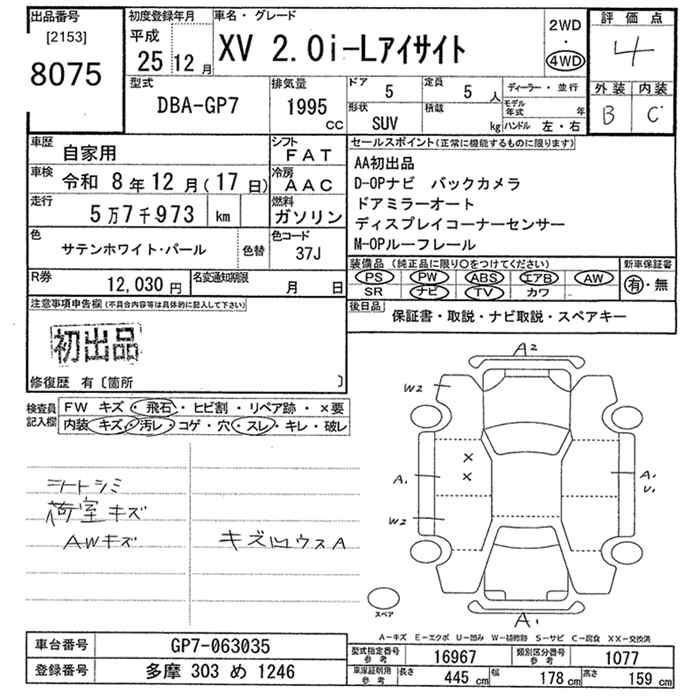 出品番号
[2153]
8075
初度登録年月
平成
25 12月
車名・グレード
XV 2.0i-Lアイサイト
2WD
・
4WD
評価点
4
外装 内装
B C
型式
DBA-GP7
排気量
1995
CC
ドア
5
定員
5 人
形状
SUV
積載
kg
ディーラー・並行
モデル年式 年
ハンドル 左・右
車歴
自家用
シフト
FAT
車検
令和 8年 12月(17日)
冷房
AAC
走行
5万7千973 km
燃料
ガソリン
色
サテンホワイト・パール
色替
色コード
37J
R券
12,030円
名変通知期限
月 日
セールスポイント(正常に機能するものに限ります)
AA初出品
D-OPナビ バックカメラ
ドアミラーオート
ディスプレイコーナーセンサー
M-OPルーフレール
装備品(純正品に限り○をつけてください)
新車保証書
PS PW ABS エアB AW
SR ナビ TV カワ
有・無
後日品
保証書・取説・ナビ取説・スペアキー
注意事項申告欄(不具合内容等は具体的に記入して下さい)
初出品
修復歴 有〔箇所 〕
検査員
記入欄
FW キズ・飛石・ヒビ割・リペア跡・×要
内装 キズ・汚レ・コゲ・穴・スレ・キレ・破レ
シートシミ
荷室キズ
AWキズ
キズ凹ウスA
A2
W2
A1
W2
×
×
A1
U1
A1
スペア
A-キズ E-エクボ U-凹み W-補修跡 S-サビ C-腐食 XX-交換済
車台番号
GP7-063035
登録番号
多摩 303 め 1246
型式指定番号
参考
16967
類別区分番号
参考
1077
車庫証明用
参考
長さ
445 cm
幅
178 cm
高さ
159 cm